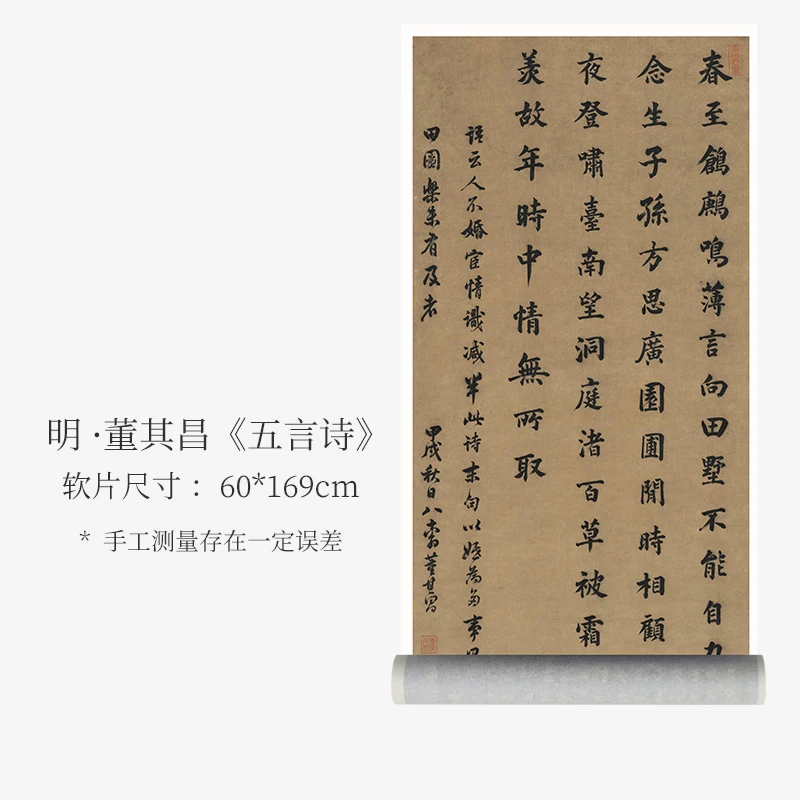 明·董其昌《五言诗》
软片尺寸：60*169cm
* 手工测量存在一定误差
春至鶬鶊鳴薄言向田墅不能自
念生子孫方思廣園圃閒時相顧
夜登嘯臺南望洞庭渚百草被霜
羨故年時中情無所取
語云人不婚宦情識減半此诗末句以婚為多事
田園樂未有及者
甲戌秋日八 董其昌